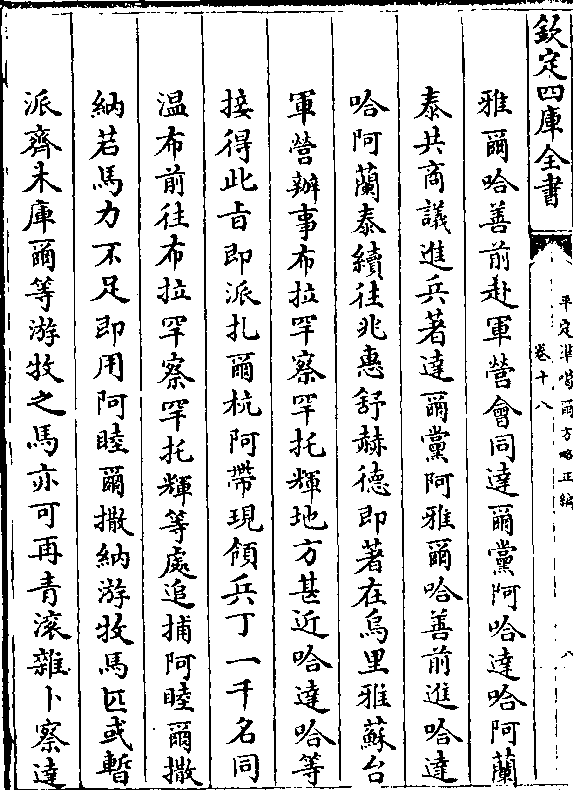 欽定四庫全書
平定準噶爾方略正編
卷十八
八
雅爾哈善前赴軍營會同達爾黨阿哈達哈阿蘭
泰共商議進兵著達爾黨阿雅爾哈善前進哈達
哈阿蘭泰續往兆惠舒赫德即著在烏里雅蘇台
軍營辦事布拉罕察罕托輝地方甚近哈達哈等
接得此旨即派扎爾杭阿帶現領兵丁一千名同
溫布前往布拉罕察罕托輝等處追捕阿睦爾撒
納若馬力不足即用阿睦爾撒納游牧馬匹或暫
派齊木庫爾等游牧之馬亦可再青滚雜卜察達